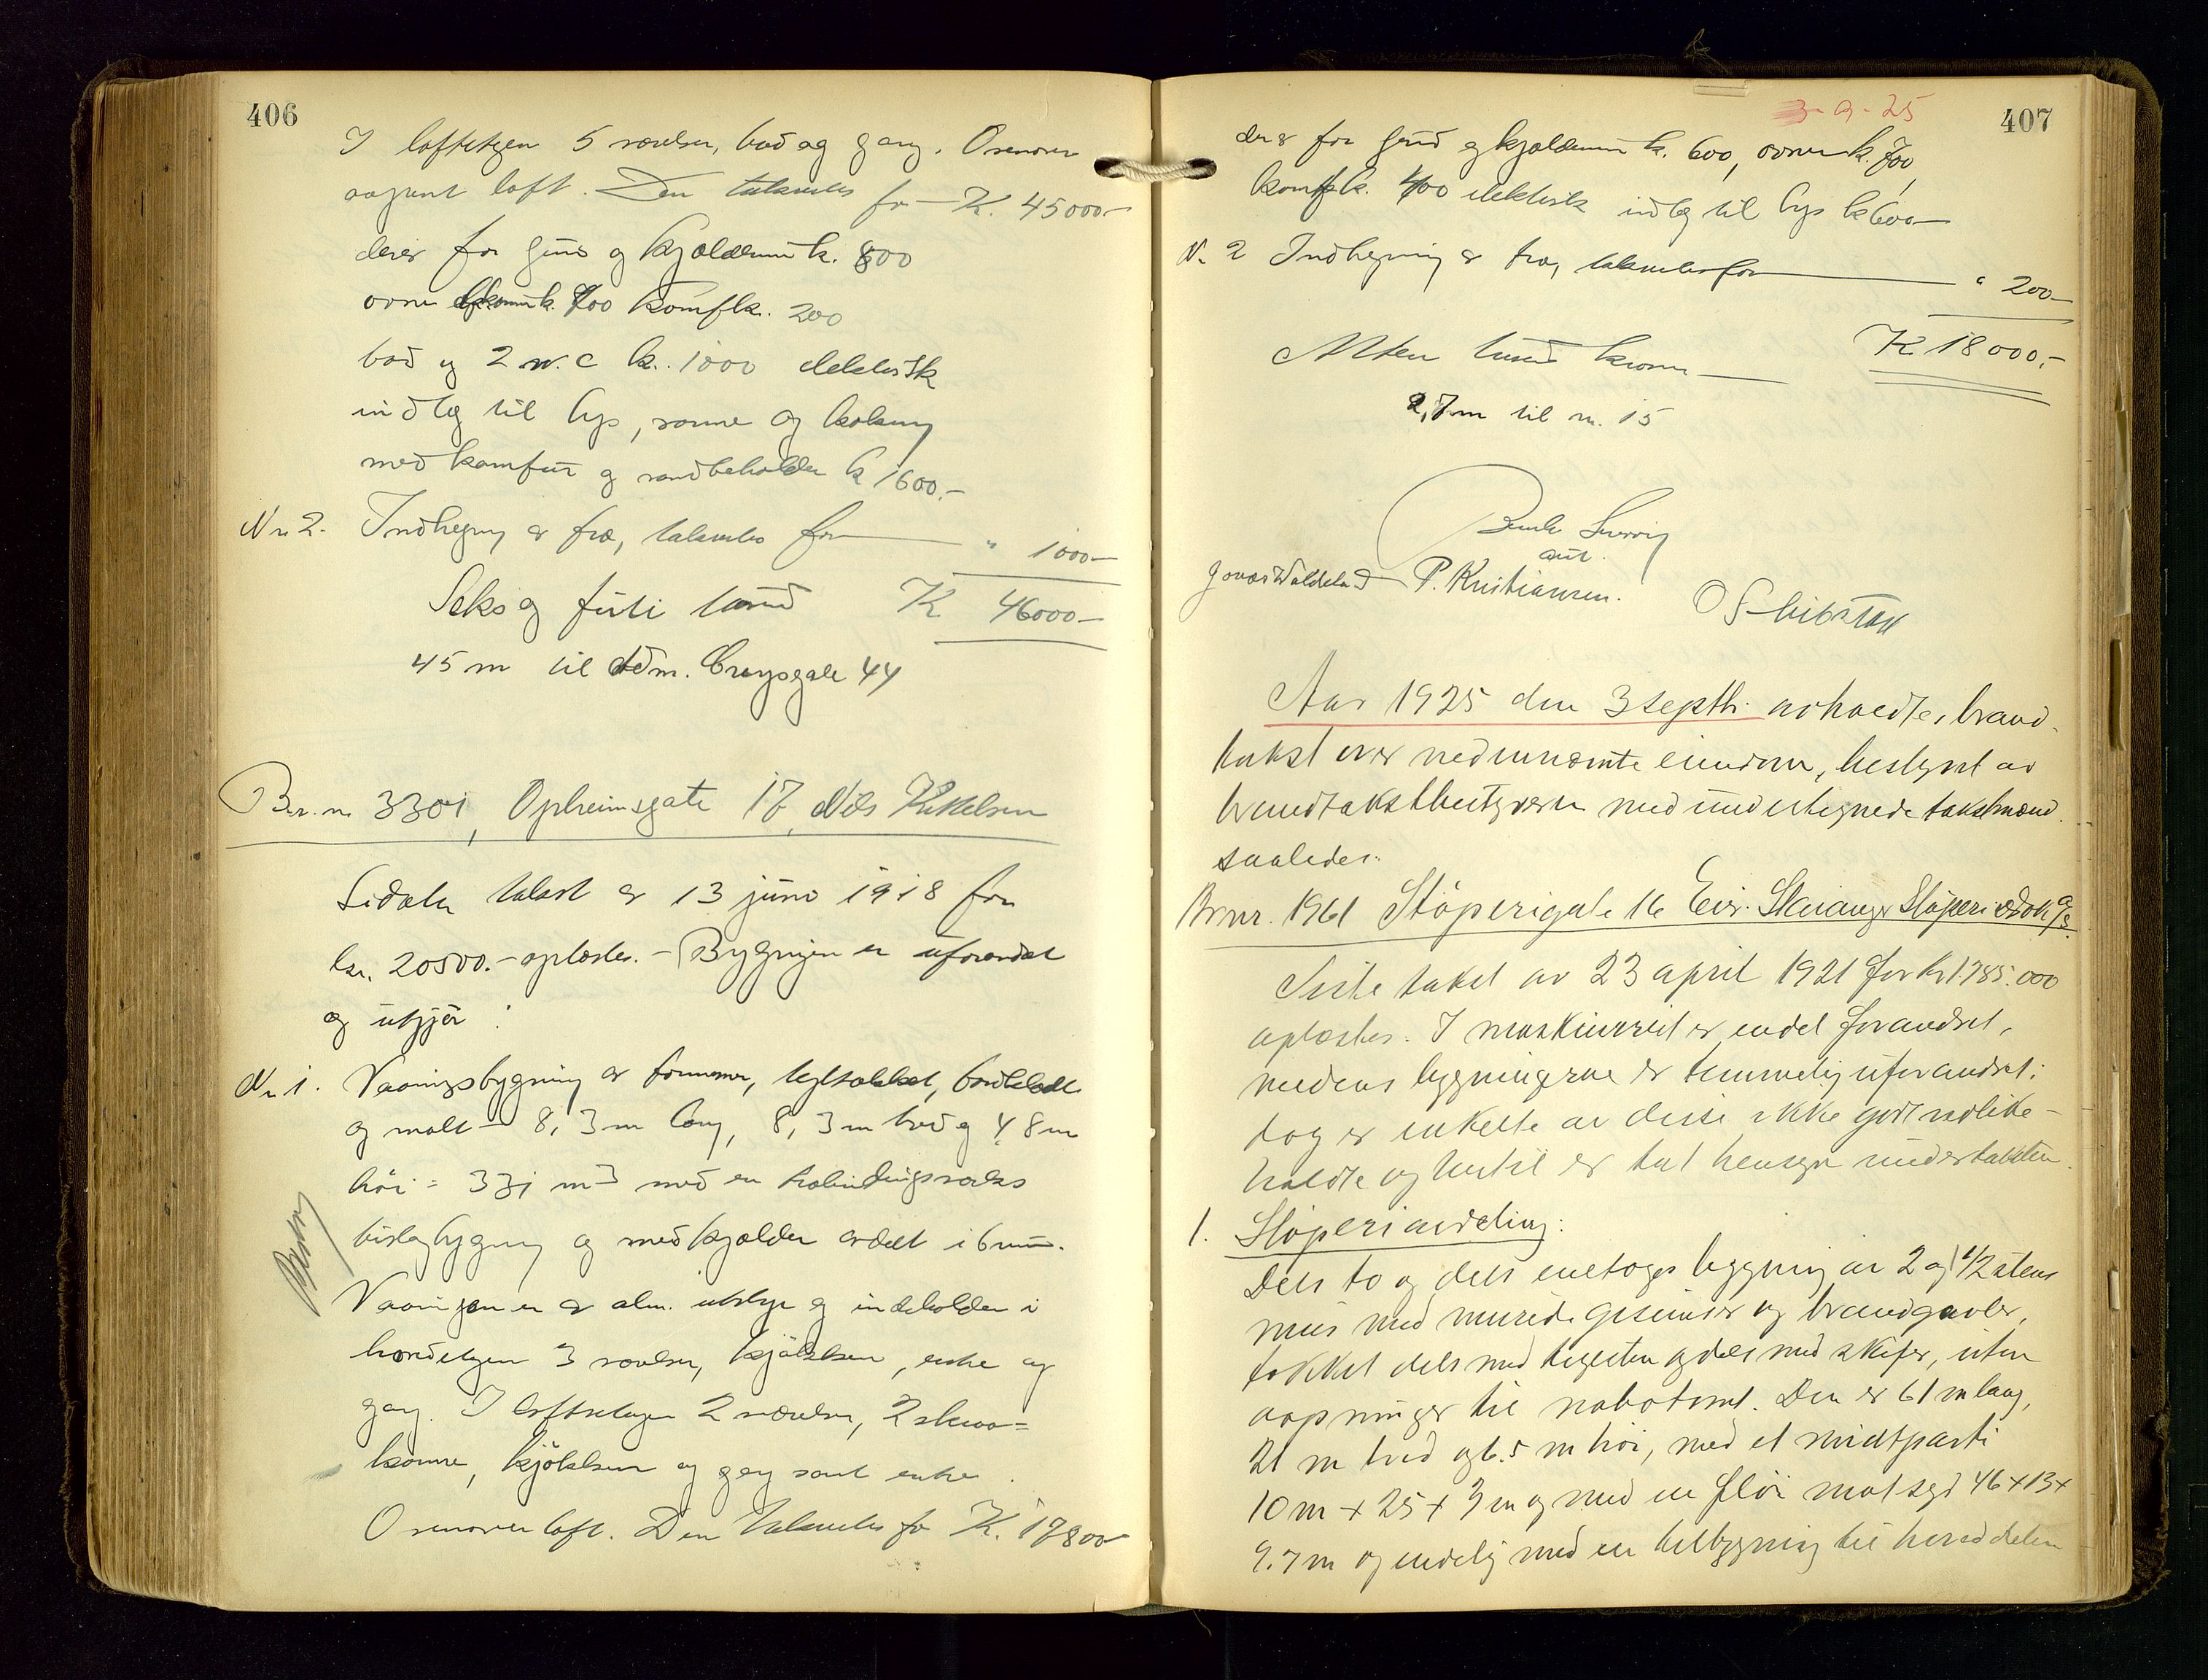 406
I loftetgen 5 værelser, bad og gang. Ovenover
aapent loft. Den takseres for K. 45000.-
derav for grund og kjælderrum k. 800
ovne k. 700 komf k. 200
bad og 2 w.c k. 1000 elektrisk
indlæg til lys, varme og kokning
med komfur og vandbeholder k 1600.-
Nr. 2. Indhegning av træ, takseres for " 1000-
Seks og førti tusind K 46000-
45 m til Adm. Cruysgate 44
Br. nr. 3301, Opheimsgate 17, Nils Kittelsen
Sidste takst av 13 juni 1918 for
kr. 20500.- oplæstes. - Bygningen er uforandret
og utgjør :
Nr. 1. Vaaningsbygning av tømmer, teglstækket, bordklædt
og malt - 8,3 m lang, 8,3 m bred og 4,8 m
høi = 331 m3 med en halvindbygget
bislagbygning og med kjælder avdelt i 6 rum.
Vaaningen er av alm. utstyr og indeholder i
hovedetgen 3 værelser, kjøkken, entre og
gang. I loftsetagen 2 værelser, 2 skraa=
komme, kjøkken og gang samt entre.
Ovenover loft. Den takseres for K. 17800-
3-9-25
407
derav for grund og kjælderrum k. 600, ovner k. 700,
komf k. 400 elektrisk indlæg til lys k 600-
Nr. 2 Indhegning av træ, takseres for " 200-
Atten tusind kroner K 18000.-
2,7 m til nr. 15
aut.
Jonas Waldeland P. Kristiansen. O Skibstad
Aar 1925 den 3 septbr. avholdtes brand-
takst over nedennævnte eiendom, bestyret av
brandtakstbestyreren med undertegnede takstmænd
saaledes:
Br nr. 1961 Støperigate 16 Eier: Stavanger Støperi & Dok A/S.
Siste takst av 23 april 1921 for kr 1.785.000
oplæstes. I maskineriet er endel forandret,
medens bygningerne er temmelig uforandret;
dog er enkelte av disse ikke godt vedlike-
holdte og hertil er tat hensyn under taksten.
1. Støperiavdeling:
Dels to og dels enetages bygning av 2 og 1 1/2 stens
mur med murede gesimser og brandgavler,
tækket dels med teglsten og dels med skifer, uten
aapninger til nabotomt. Den er 61 m lang,
21 m bred og 6.5 m høi, med et midtparti
10 m x 25 x 3 m og med en fløi mot syd 46 x 13 x
9.7 m og endelig med en tilbygning til hoveddelen